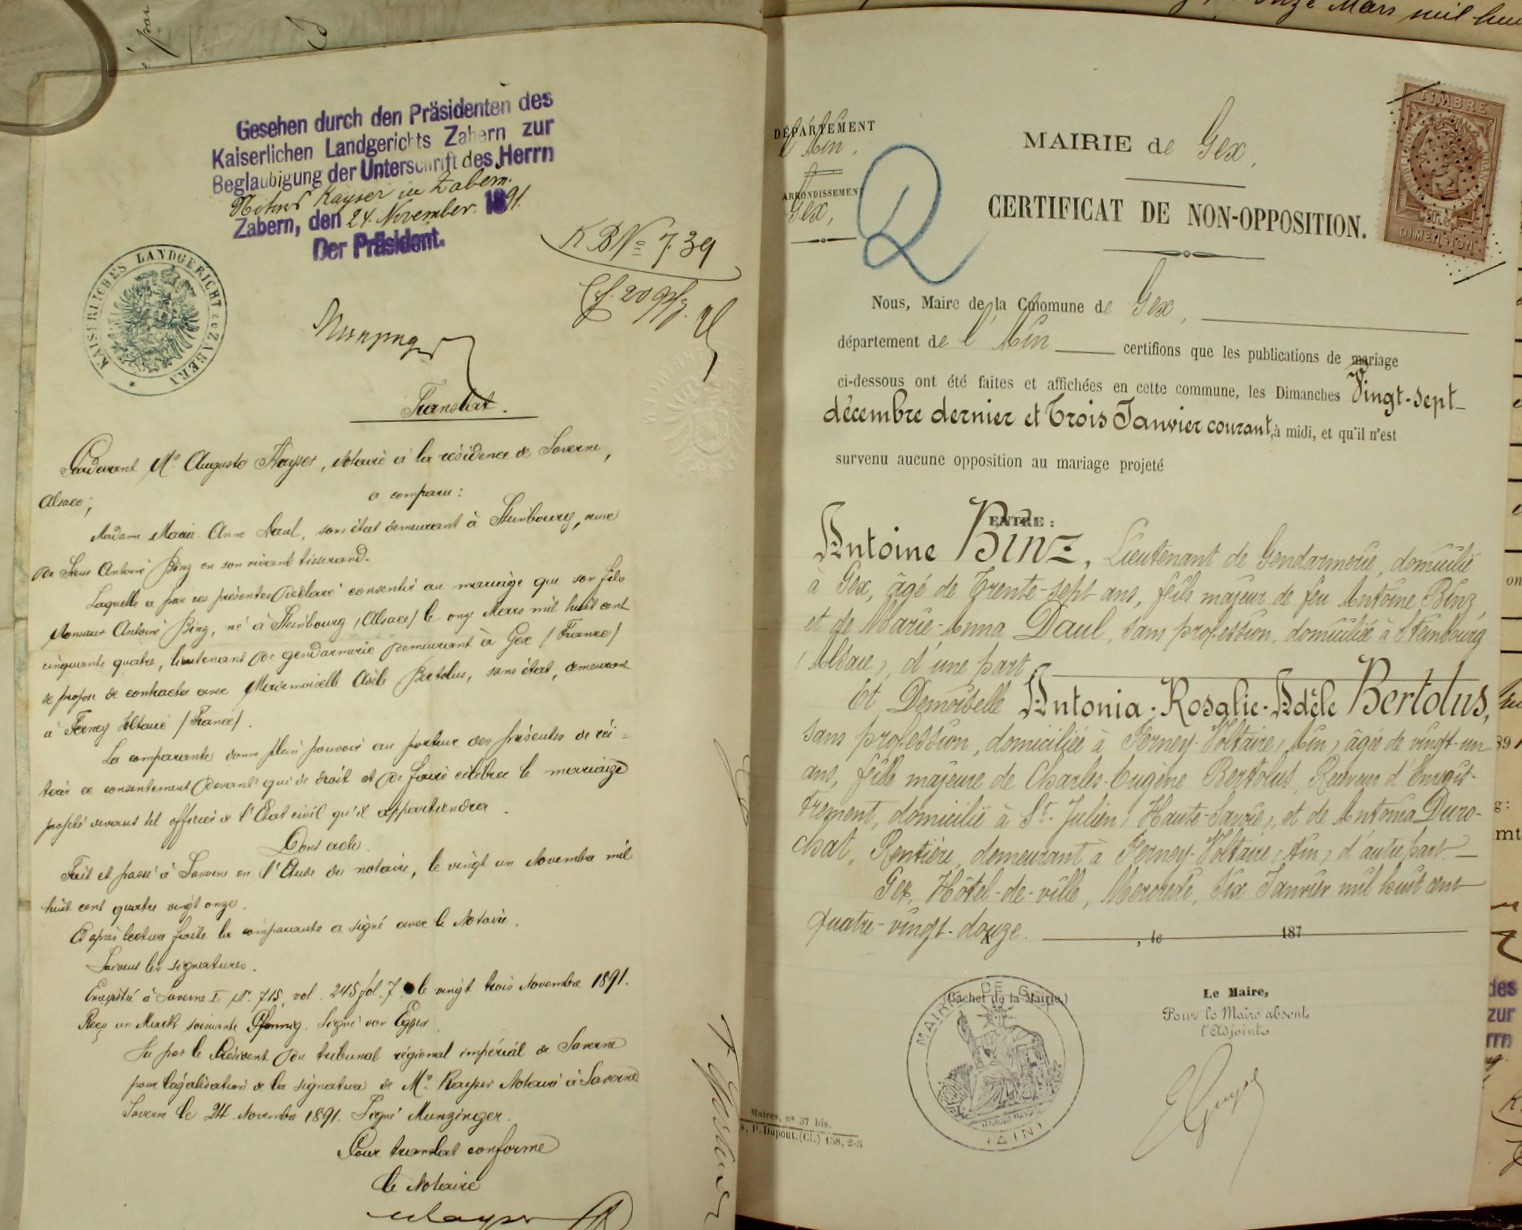 Gesehen durch den Präsidenten des
Kaiserlichen Landgerichts Zabern zur
Beglaubigung der Unterschrift des Herrn
Notars Kayser in Zabern.
Zabern, den 24. November 1891.
Der Präsident.
KAISERLICHES LANDGERICHT zu ZABERN
K B No 739
20 Pfg.
Translat.
Pardevant Me Auguste Kayser, Notaire à la résidence de Saverne,
Alsace;
a comparu:
Madame Maria Anna Daul, sans état demeurant à Steinbourg, veuve
de Sieur Antoine Binz en son vivant tisserand.
Laquelle a par ces présentes déclaré consentir au mariage que son fils
Monsieur Antoine Binz, né à Steinbourg (Alsace) le onze Mars mil huit cent
cinquante quatre, lieutenant de gendarmerie demeurant à Gex (France)
se propose de contracter avec Mademoiselle Adèle Bertolus, sans état, demeurant
à Ferney Voltaire (France).
La comparante donne plein pouvoir au porteur des présentes de réi=
térer ce consentement devant qui de droit et de faire célébrer le mariage
projeté devant tel officier de l'Etat civil qu'il appartiendra.
Dont acte.
Fait et passé à Saverne en l'Etude du notaire, le vingt un Novembre mil
huit cent quatre vingt onze.
Et après lecture faite la comparante a signé avec le Notaire.
Suivent les signatures.
Enregistré à Saverne I No. 715, vol. 245 fol. 7. le vingt trois Novembre 1891.
Reçu un Mark soixante Pfennig. Signé von Eggs
Vu par le Président du tribunal régional impérial de Saverne
pour légalisation de la signature de Me Kayser Notaire à Saverne
Saverne le 24 Novembre 1891. Signé Munzinger.
Pour translat conforme
Le Notaire
Kayser
onze Mars mil hui
DÉPARTEMENT
de l'Ain.
ARRONDISSEMENT
Gex,
MAIRIE de Gex.
CERTIFICAT DE NON-OPPOSITION.
TIMBRE
DIMENSION
Nous, Maire de la Commune de Gex,
département de l'Ain certifions que les publications de mariage
ci-dessous ont été faites et affichées en cette commune, les Dimanches Vingt-sept
décembre dernier et Trois Janvier courant, à midi, et qu'il n'est
survenu aucune opposition au mariage projeté
ENTRE :
Antoine BINZ, Lieutenant de Gendarmerie, domicilié
à Gex, âgé de Trente-sept ans, fils majeur de feu Antoine Binz,
et de Marie-Anna Daul, sans profession, domiciliée à Steinbourg
(Alsace), d'une part,
Et Demoiselle Antonia-Rosalie-Adèle Bertolus,
sans profession, domiciliée à Ferney-Voltaire (Ain) âgée de vingt-un
ans, fille majeure de Charles-Eugène Bertolus, Receveur d'Enregis-
trement, domicilié à St-Julien (Haute-Savoie), et de Antonia Duro-
chat, Rentière, demeurant à Ferney-Voltaire (Ain) d'autre part.
Gex, Hôtel-de-ville, Mercredi, Six Janvier mil huit cent
quatre-vingt-douze. , le 187
(Cachet de la Mairie.)
MAIRIE DE GEX
(AIN)
Le Maire,
Pour le Maire absent
l'Adjoint
Mairies, no 37 bis.
P. Dupont. (Cl.) 158, 2-5
des
zur
rrn